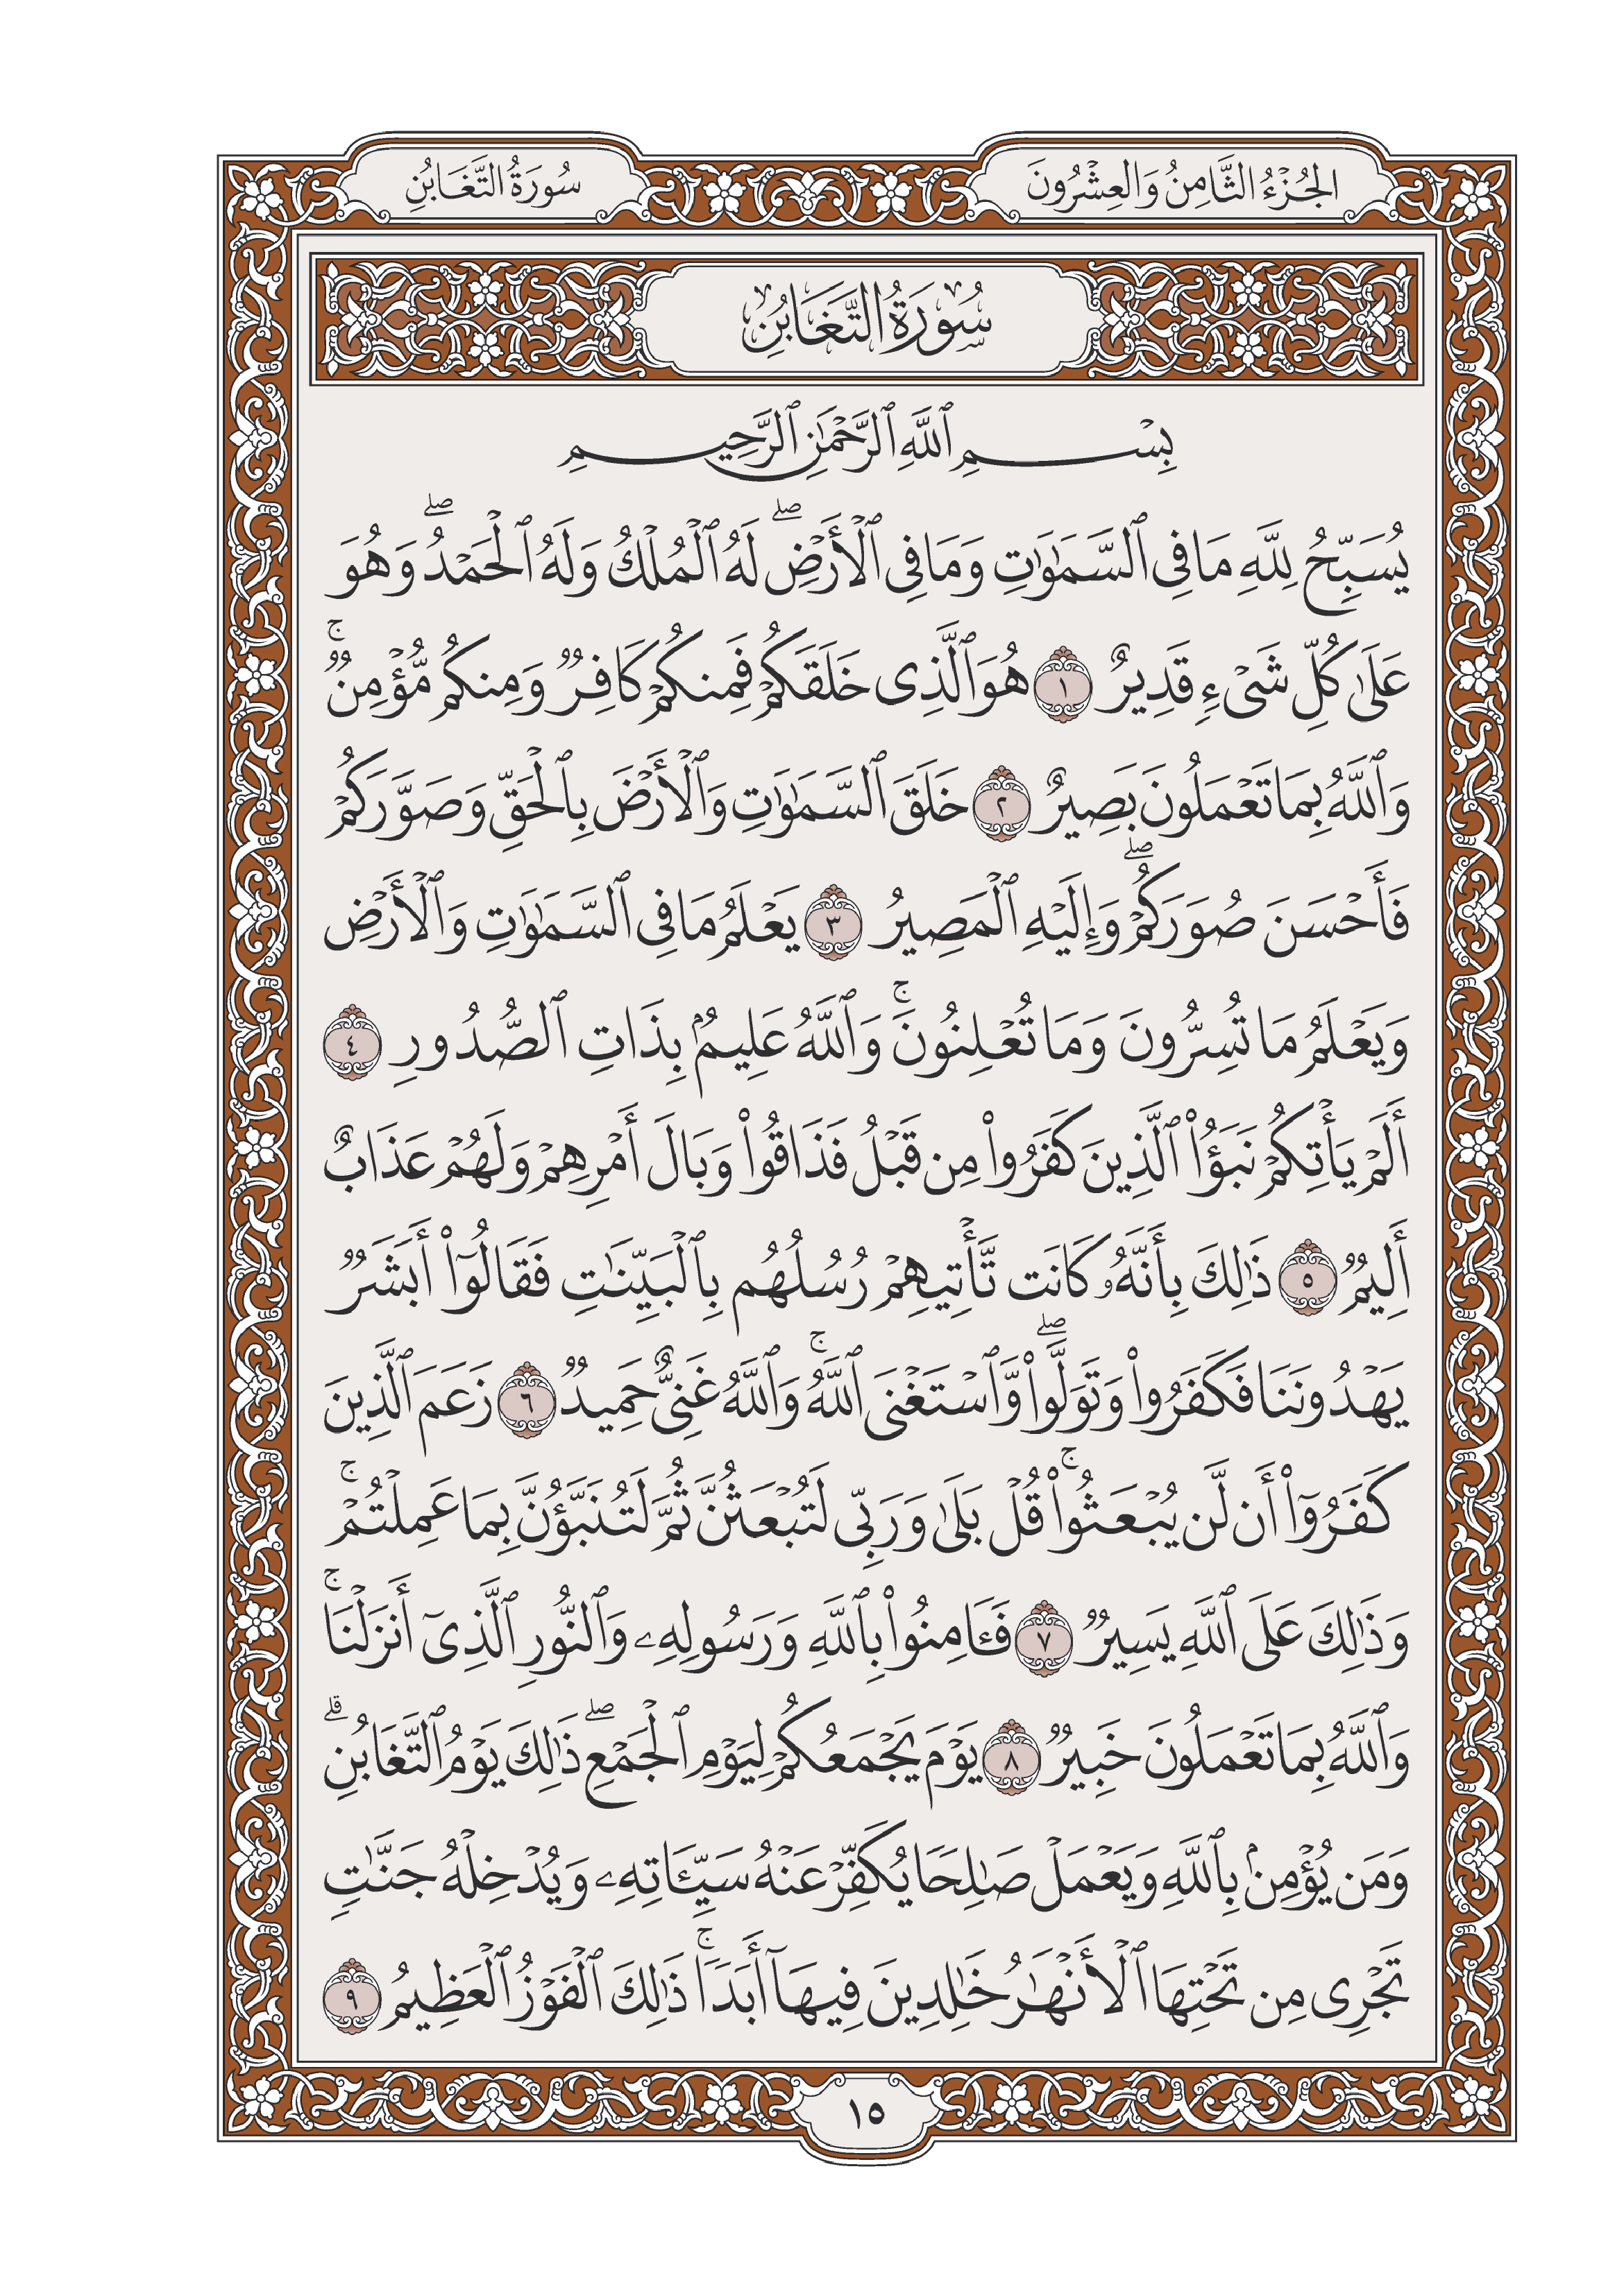 الجُزْءُ الثَّامِنُ وَالعِشْرُونَ
سُورَةُ التَّغَابُنِ
سُورَةُ التَّغَابُنِ
بِسْمِ ٱللَّهِ ٱلرَّحْمَٰنِ ٱلرَّحِيمِ
يُسَبِّحُ لِلَّهِ مَا فِى ٱلسَّمَٰوَٰتِ وَمَا فِى ٱلْأَرْضِۖ لَهُ ٱلْمُلْكُ وَلَهُ ٱلْحَمْدُۖ وَهُوَ
عَلَىٰ كُلِّ شَىْءٍ قَدِيرٌ ١ هُوَ ٱلَّذِى خَلَقَكُمْ فَمِنكُمْ كَافِرٌ وَمِنكُم مُّؤْمِنٌۚ
وَٱللَّهُ بِمَا تَعْمَلُونَ بَصِيرٌ ٢ خَلَقَ ٱلسَّمَٰوَٰتِ وَٱلْأَرْضَ بِٱلْحَقِّ وَصَوَّرَكُمْ
فَأَحْسَنَ صُوَرَكُمْۖ وَإِلَيْهِ ٱلْمَصِيرُ ٣ يَعْلَمُ مَا فِى ٱلسَّمَٰوَٰتِ وَٱلْأَرْضِ
وَيَعْلَمُ مَا تُسِرُّونَ وَمَا تُعْلِنُونَۚ وَٱللَّهُ عَلِيمٌۢ بِذَاتِ ٱلصُّدُورِ ٤
أَلَمْ يَأْتِكُمْ نَبَؤُا۟ ٱلَّذِينَ كَفَرُوا۟ مِن قَبْلُ فَذَاقُوا۟ وَبَالَ أَمْرِهِمْ وَلَهُمْ عَذَابٌ
أَلِيمٌ ٥ ذَٰلِكَ بِأَنَّهُۥ كَانَت تَّأْتِيهِمْ رُسُلُهُم بِٱلْبَيِّنَٰتِ فَقَالُوٓا۟ أَبَشَرٌ
يَهْدُونَنَا فَكَفَرُوا۟ وَتَوَلَّوا۟ۖ وَّٱسْتَغْنَى ٱللَّهُۚ وَٱللَّهُ غَنِىٌّ حَمِيدٌ ٦ زَعَمَ ٱلَّذِينَ
كَفَرُوٓا۟ أَن لَّن يُبْعَثُوا۟ۚ قُلْ بَلَىٰ وَرَبِّى لَتُبْعَثُنَّ ثُمَّ لَتُنَبَّؤُنَّ بِمَا عَمِلْتُمْۚ
وَذَٰلِكَ عَلَى ٱللَّهِ يَسِيرٌ ٧ فَـَٔامِنُوا۟ بِٱللَّهِ وَرَسُولِهِۦ وَٱلنُّورِ ٱلَّذِىٓ أَنزَلْنَاۚ
وَٱللَّهُ بِمَا تَعْمَلُونَ خَبِيرٌ ٨ يَوْمَ يَجْمَعُكُمْ لِيَوْمِ ٱلْجَمْعِۖ ذَٰلِكَ يَوْمُ ٱلتَّغَابُنِۗ
وَمَن يُؤْمِنۢ بِٱللَّهِ وَيَعْمَلْ صَٰلِحًا يُكَفِّرْ عَنْهُ سَيِّـَٔاتِهِۦ وَيُدْخِلْهُ جَنَّٰتٍ
تَجْرِى مِن تَحْتِهَا ٱلْأَنْهَٰرُ خَٰلِدِينَ فِيهَآ أَبَدًاۚ ذَٰلِكَ ٱلْفَوْزُ ٱلْعَظِيمُ ٩
١٥